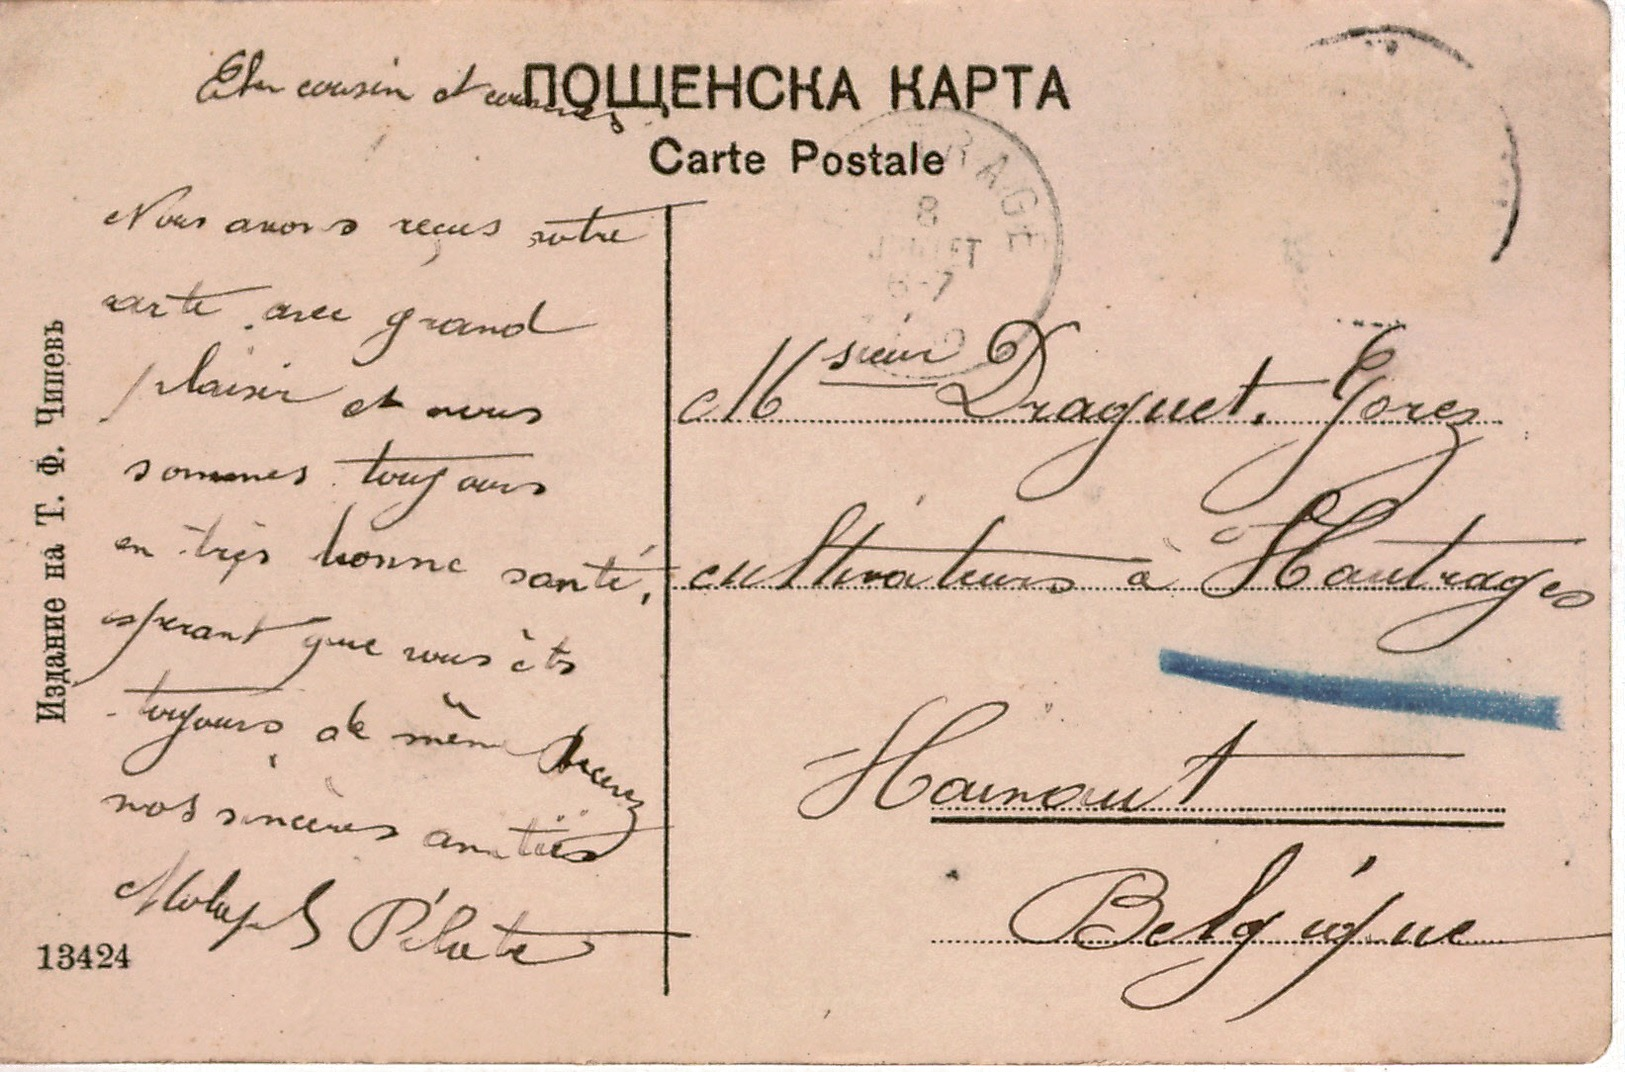 ПОЩЕНСКА КАРТА
Carte Postale
Cher cousin et cousines
Nous avons reçus votre
carte avec grand
plaisir et nous
sommes toujours
en très bonne santé,
esperant que vous ète
toujours de même Recevez
nos sincères amitiès
Pilate
Издание на Т. Ф. Чипевъ
13424
RAGE
8
JUILLET
6-7
Msieur Draguet. Gorez
cultivateurs à Hautrages
Hainaut
Belgique